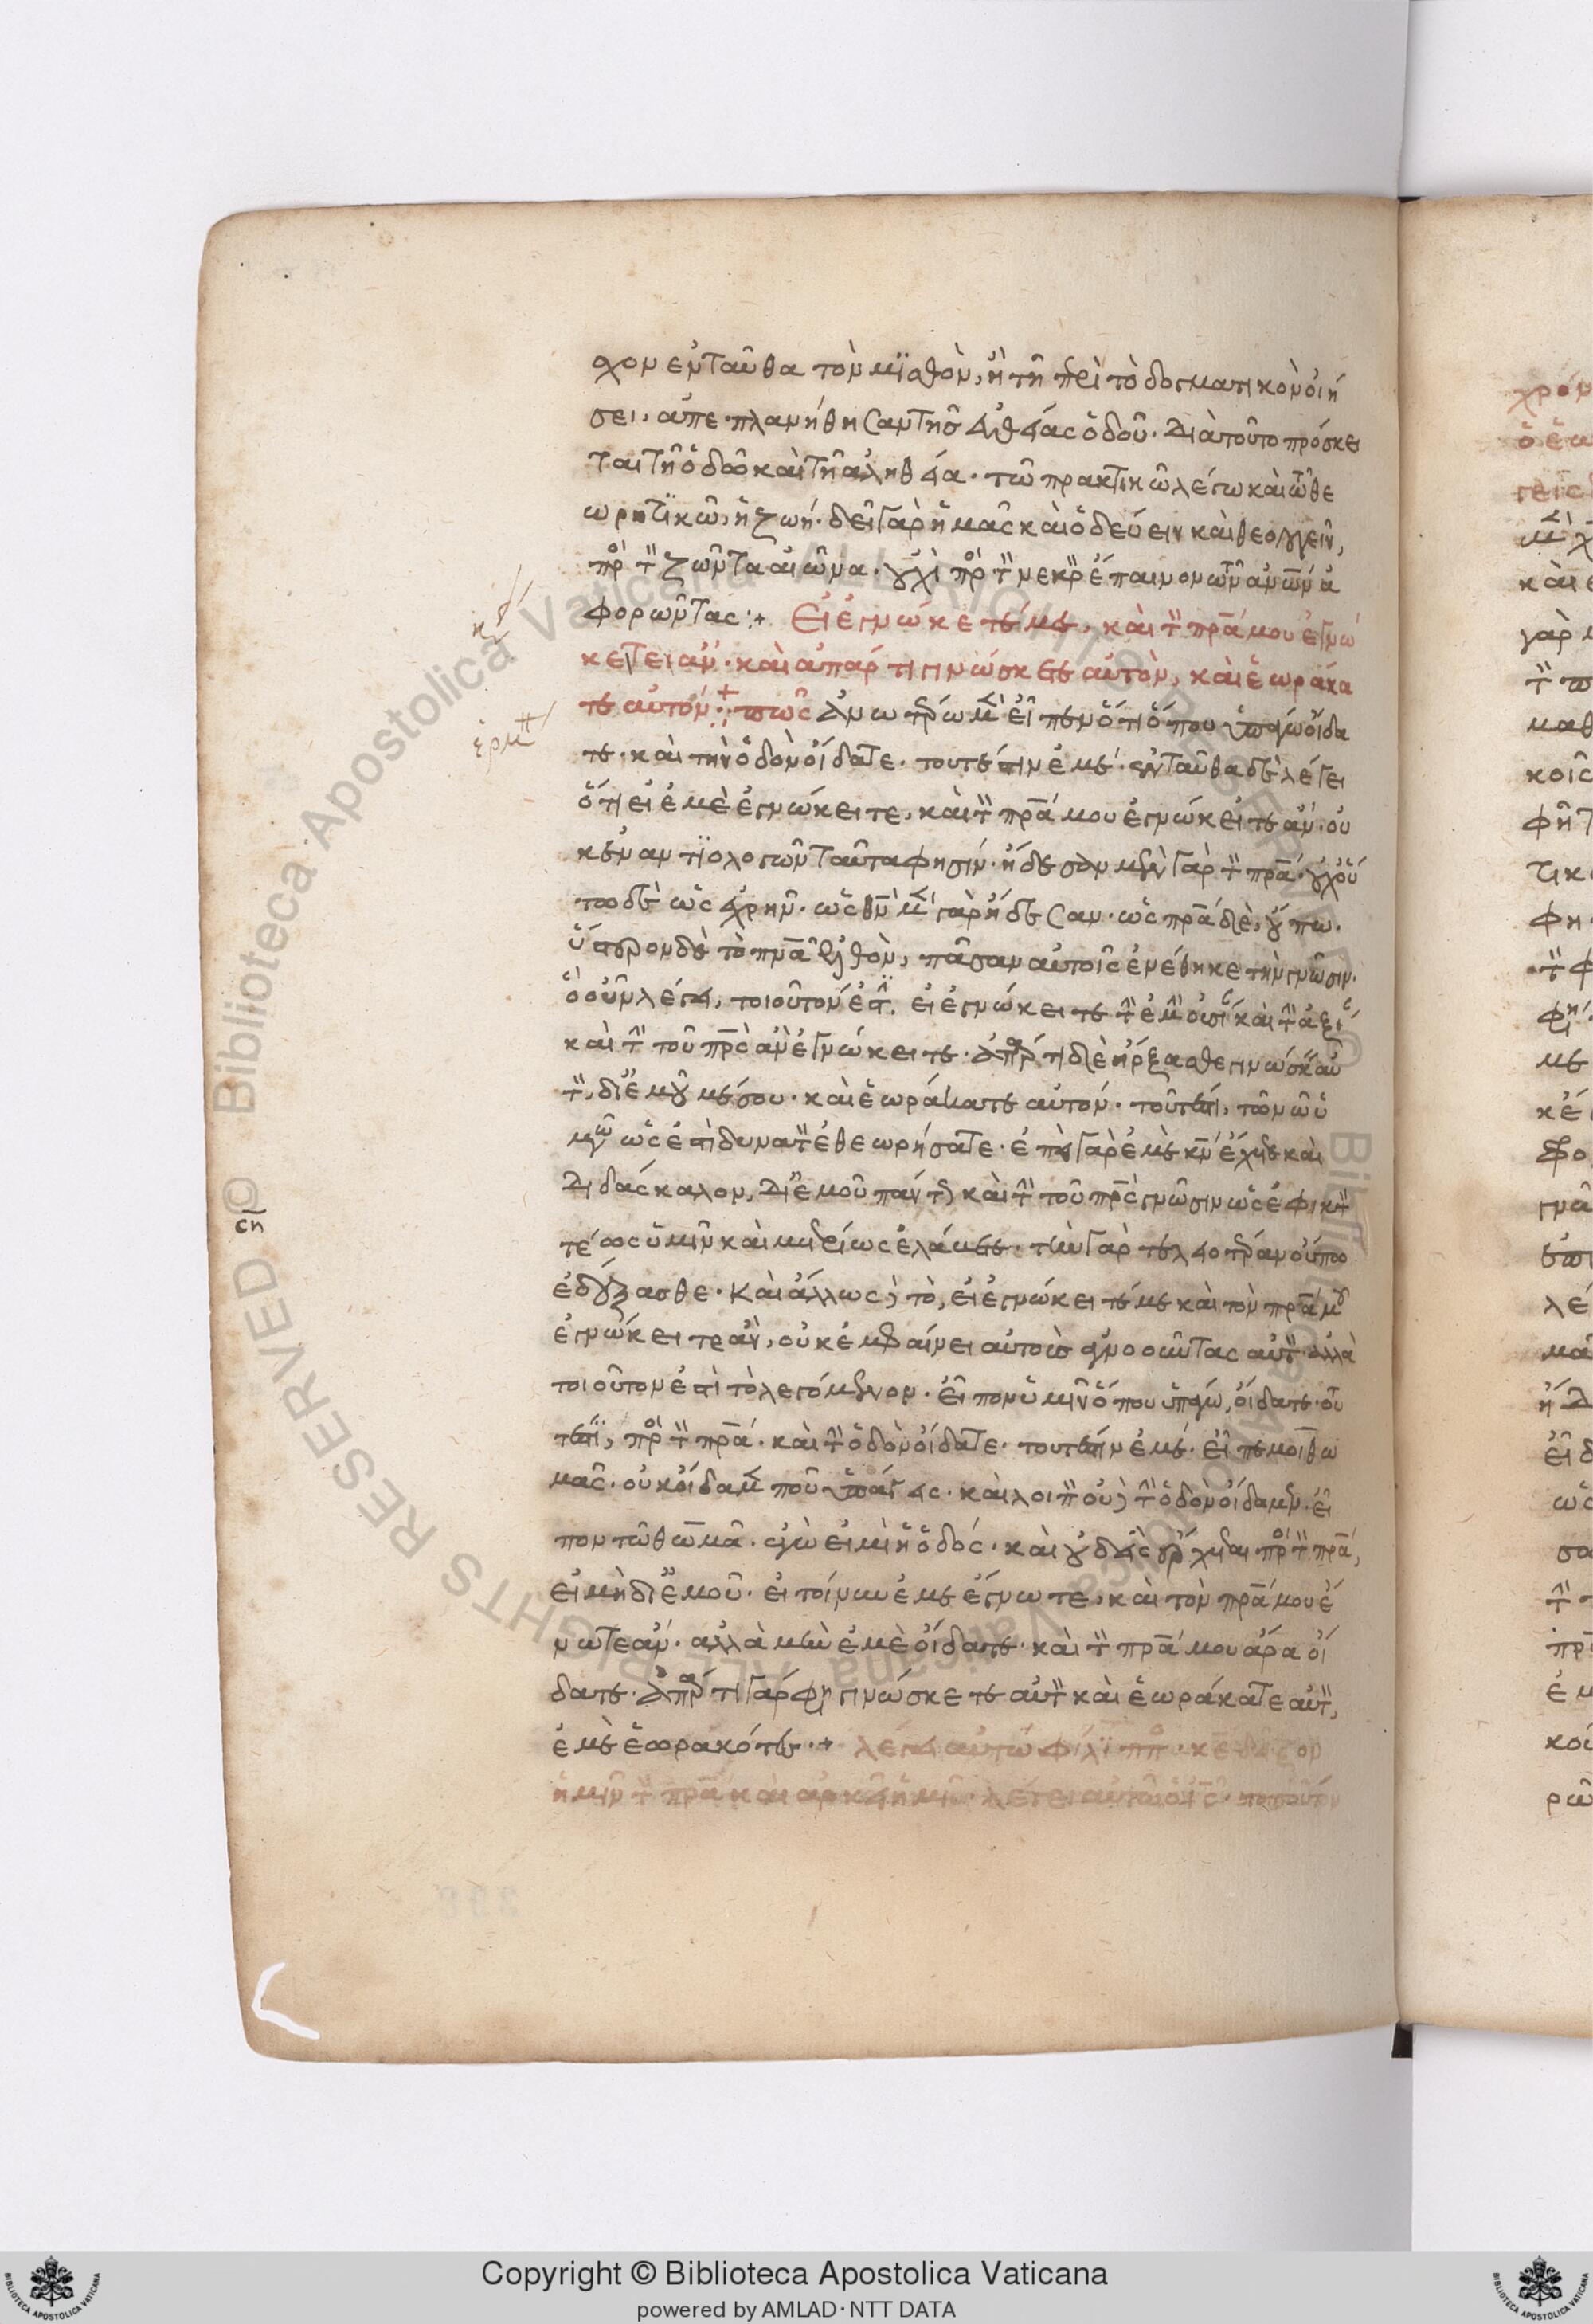 χον ἐνταῦθα τὸν μϊσθὸν, ἢ τῆ περὶ τὸ δογματικὸν οἰή
σει, ἀπεπλανήθησαν τῆς εὐθείας ὁδοῦ. διὰ τοῦτο πρόσκει
ται τῆ ὁδῶ καὶ τῆ ἀληθεία. τῶ πρακτικῶ λέγω καὶ τῶ θε
ωρητϊκῶ, ἡ ζωή. δεῖ γὰρ ἡμᾶς καὶ ὁδεύειν καὶ θεολογεῖν,
πρὸς τὸν ζῶντα αἰῶνα. οὐχὶ πρὸς τὸν νεκρὸν ἔπαινον τῶν ἀνων ἀ
φορῶντας :+ Εἰ ἐγνώκετέ με, καὶ τὸν πρα μου ἐγνώ
κειτε ἄν. καὶ ἀπάρτι γινώσκετε αὐτὸν, καὶ ἑωράκα
τε αὐτόν :+ πῶς ἀνωτέρω μὲν εἶπεν ὅτι ὅπου ὑπάγω οἴδα
τε. καὶ τὴν ὁδὸν οἴδατε. τουτέστιν ἐμέ. ἐνταῦθα δὲ λέγει
ὅτι εἰ ἐμὲ ἐγνώκειτε, καὶ τὸν πρα μου ἐγνώκειτε ἄν. οὐ
κ ἐναντϊολογῶν ταῦτα φησίν. ἤδεσαν μὲν γὰρ τὸν πρα. οὐχ οὕ
τω δὲ ὡς ἐχρῆν. ὡς θν μὲν γὰρ ἤδεσαν. ὡς πρα δὲ, οὔπω.
ὕστερον δὲ τὸ πνα ἐλθὸν, πᾶσαν αὐτοῖς ἐνέθηκε τὴν γνῶσιν.
ὃ οὖν λέγει, τοιοῦτόν ἐστιν. εἰ ἐγνώκειτε τὴν ἐμὴν οὐσίαν καὶ τὴν ἀξίαν
καὶ τὴν τοῦ πρς ἂν ἐγνώκειτε. ἀπάρτι δὲ ἤρξασθε γινώσκειν αὐ
τὸν, δι' ἐμοῦ μέσου. καὶ ἑωράκατε αὐτόν. τουτέστι, τῶ νῶ ὑ
μῶν ὡς ἐστὶ δυνατὸν ἐθεωρήσατε. ἐπεὶ γὰρ ἐμὲ κν ἔχετε καὶ
διδάσκαλον, δι' ἐμοῦ πάντως καὶ τὴν τοῦ πρς γνῶσιν ὡς ἐφικτὸν
τέως ὑμῖν καὶ μετρίως ἐλάβετε. τὴν γὰρ τελεοτέραν οὔπω
ἐδέξασθε. καὶ ἄλλως δὲ τὸ, εἰ ἐγνώκειτέ με καὶ τὸν πρα μου
ἐγνώκειτε ἂν, οὐκ ἐμφαίνει αὐτοὺς ἀγνοοῦντας αὐτὸν ἀλλὰ
τοιοῦτον ἐστὶ τὸ λεγόμενον. εἶπον ὑμῖν ὅπου ὑπάγω, οἴδατε. του
τέστι, πρὸς τὸν πρα. καὶ τὴν ὁδὸν οἴδατε. τουτέστιν ἐμέ. εἶπέ μοι θω
μᾶς. οὐκ οἴδαμεν ποῦ ὑπάγεις. καὶ λοιπὸν οὐδὲ τὴν ὁδὸν οἴδαμεν. εἶ
πον τῶ θωμᾶ. ἐγὼ εἰμὶ ἡ ὁδός. καὶ οὐδεὶς ἔρχεται πρὸς τὸν πρα,
εἰ μὴ δι' ἐμοῦ. εἰ τοίνυν ἐμὲ ἔγνωτε, καὶ τὸν πρα μου ἔ
γνωτε ἄν. ἀλλὰ μὴν ἐμὲ οἴδατε. καὶ τὸν πρα μου ἄρα οἴ
δατε. ἀπάρτι γάρ φησι γινώσκετε αὐτὸν καὶ ἑωράκατε αὐτὸν,
ἐμὲ ἑωρακότες .+ λέγει αὐτῶ φίλϊππος. κε δεῖξον
ἡμῖν τὸν πρα καὶ ἀρκεῖ ἡμῖν. λέγει αὐτῶ ὁ ις. τοσοῦτον
Copyright © Biblioteca Apostolica Vaticana
powered by AMLAD·NTT DATA